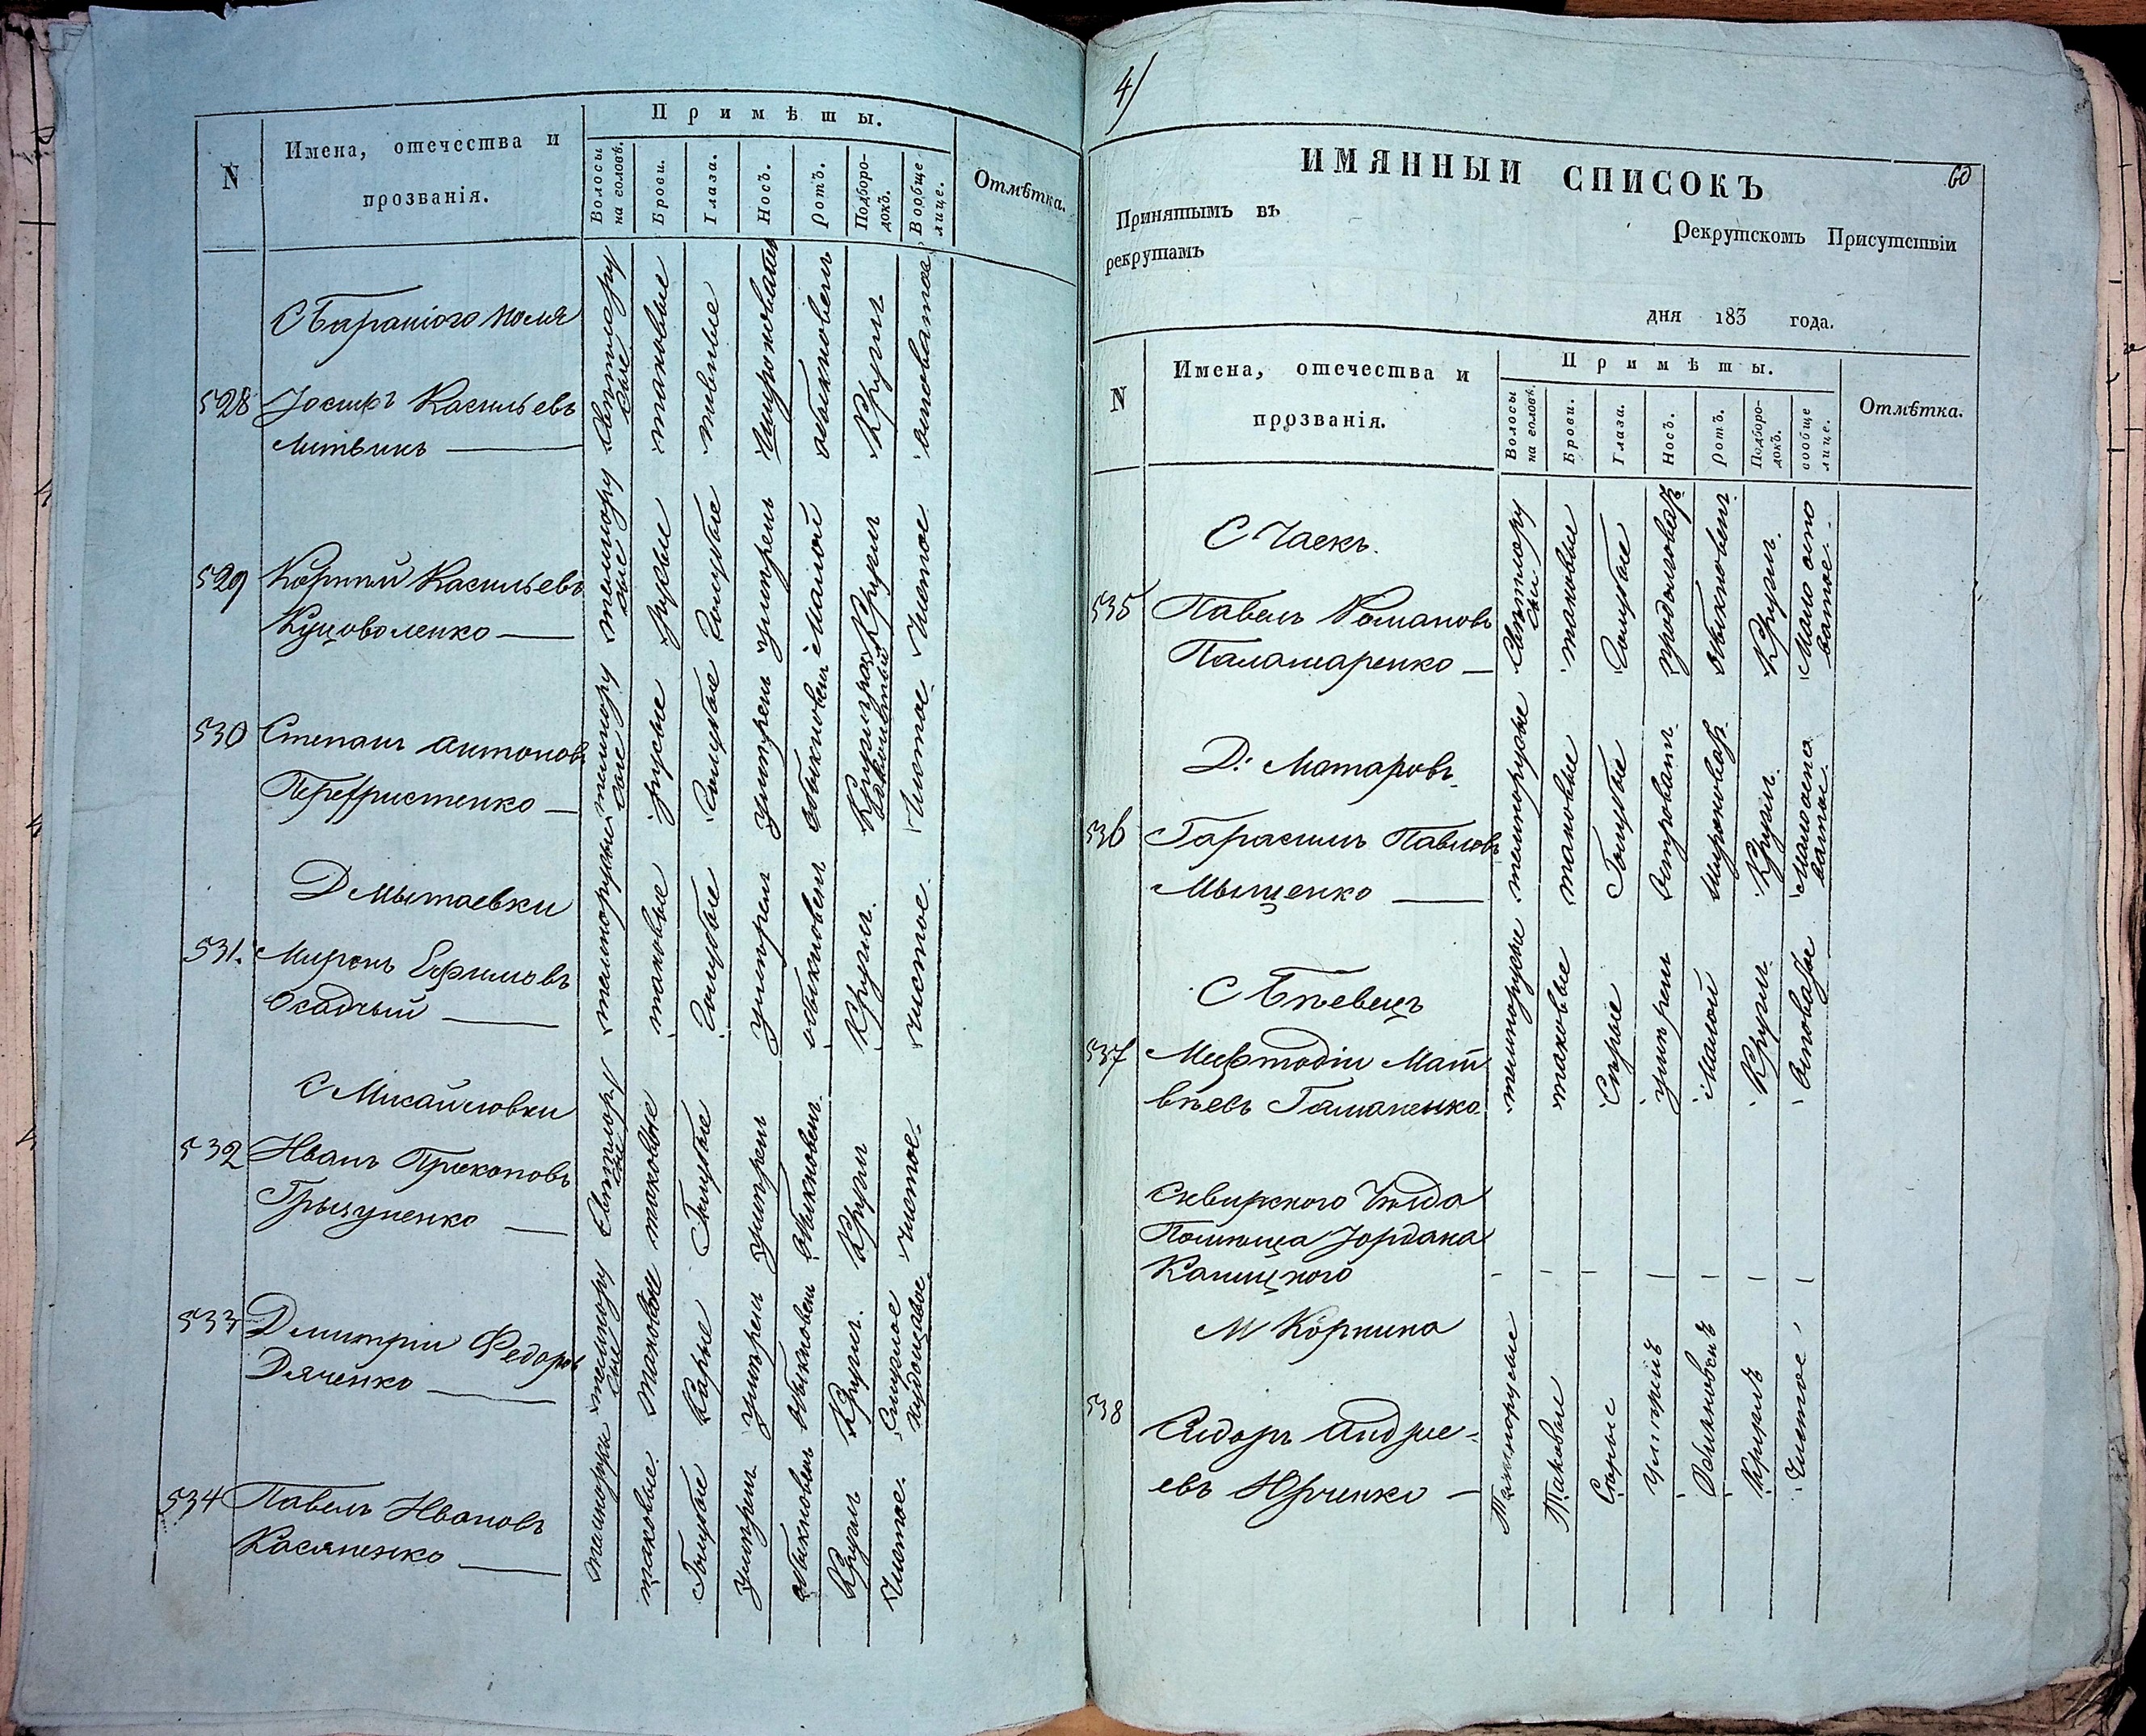 N
Имена, отечества и
прозванія.
Примѣты.
Волосы
на головѣ.
Брови.
Глаза.
Носъ.
Ротъ.
Подборо-
докъ.
Вообще
лице.
Отмѣтка.
С Баранього поля
528 Іосипъ Васильевъ
Литвикъ
Светлору
сые
таковые
обыкновенъ
Круглъ
529 Корнѣй Васильевъ
Куцоволенко
темнору
сые
русые
Голубые
умѣренъ
Малой
Круглъ
Чистое
530 Степанъ Антоновъ
темнору
сые
русые
Голубые
умѣренъ
обыкновенъ
Чистое
Д Мытаевки
531. Миронъ Ефимовъ
Осадчый
темнорусые
таковые
Голубые
умѣренъ
обыкновенъ
Круглъ.
чистое.
С Михайловки
532 Иванъ Прокоповъ
Грыцуненко
Светлору
сые
таковые
Голубые
умѣренъ
обыкновенъ
Круглъ
Чистое.
533 Дмитрій Федоровъ
Дяченко
темнору
сые
таковые
Карые
умѣренъ
обыкновенъ
Круглъ.
Смуглое
худощавое
534 Павелъ Ивановъ
Касяненко
таковые.
Голубые
умѣренъ
обыкновенъ
Круглъ
Чистое.
4/
60
ИМЯННЫЙ СПИСОКЪ
Принятымъ въ Рекрутскомъ Присутствіи
рекрутамъ
дня 183 года.
N
Имена, отечества и
прозванія.
Примѣты.
Волосы
на головѣ.
Брови.
Глаза.
Носъ.
Ротъ.
Подборо-
докъ.
вообще
лице.
Отмѣтка.
С Чаекъ.
535 Павелъ Романовъ
Паламаренко
Светлору
сые
таковые
Голубые
продолговатъ
обыкновенъ
Круглъ.
Мало оспо
ватое.
Д: Матаровъ.
536 Гарасимъ Павловъ
Мыщенко
темнорусые
таковые
Голубые
Круглъ.
Малооспо
ватое.
С Бѣевецъ
537 Мефтодій Мат
вѣевъ Гаманенко
темнорусые
таковые
Сѣрые
умѣренъ
Малой
Круглъ.
Сквирского Уѣзда
Помющa Іордана
М Корнина
538 Сидоръ Андре-
евъ Юрченко
Темнорусые
Таковые
Сѣрые
Умѣренъ
Обыкновенъ
Круглъ
Чистое